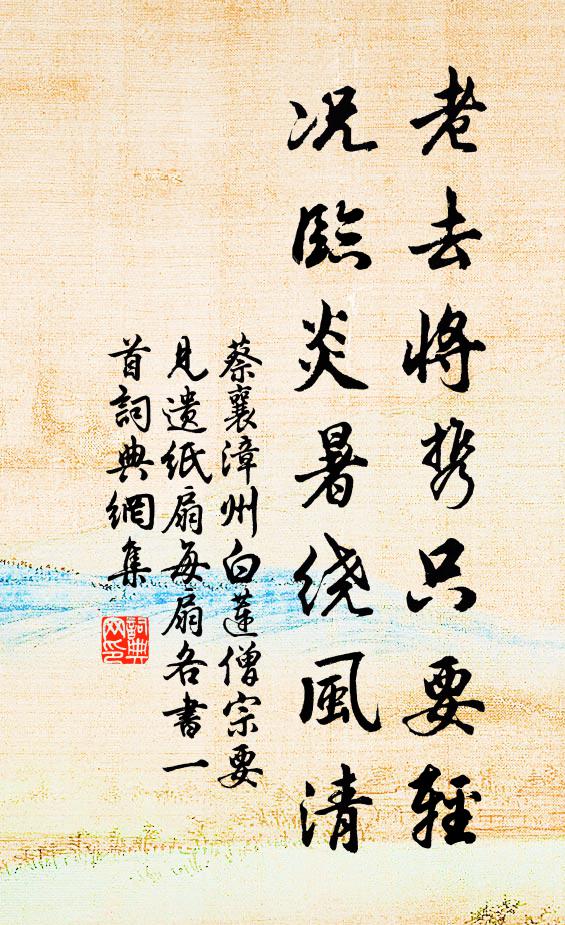 老去将携只要輕
况臨炎暑繞風清
蔡襄漳州白蓮僧宗要
見遺紙扇每扇各書一
首詞典網集
詞典
网印